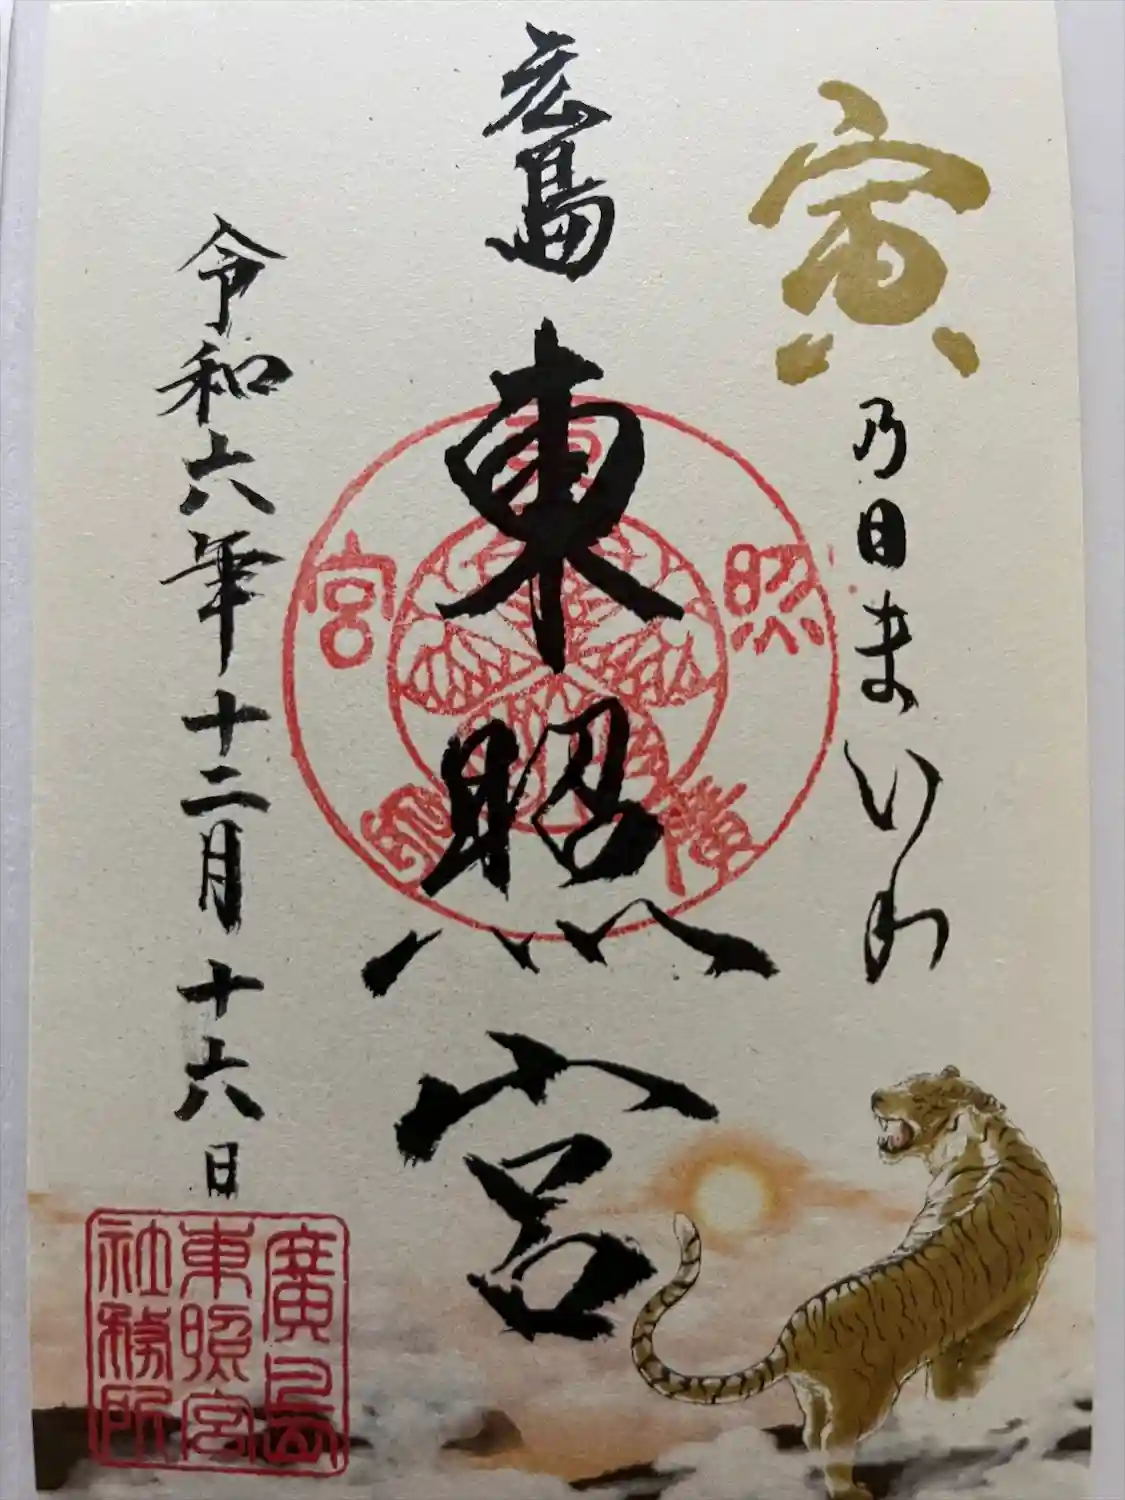 寅乃日まいり
広島
東照宮
令和六年十二月十六日
東照宮
廣島
廣島
東照宮
社務所